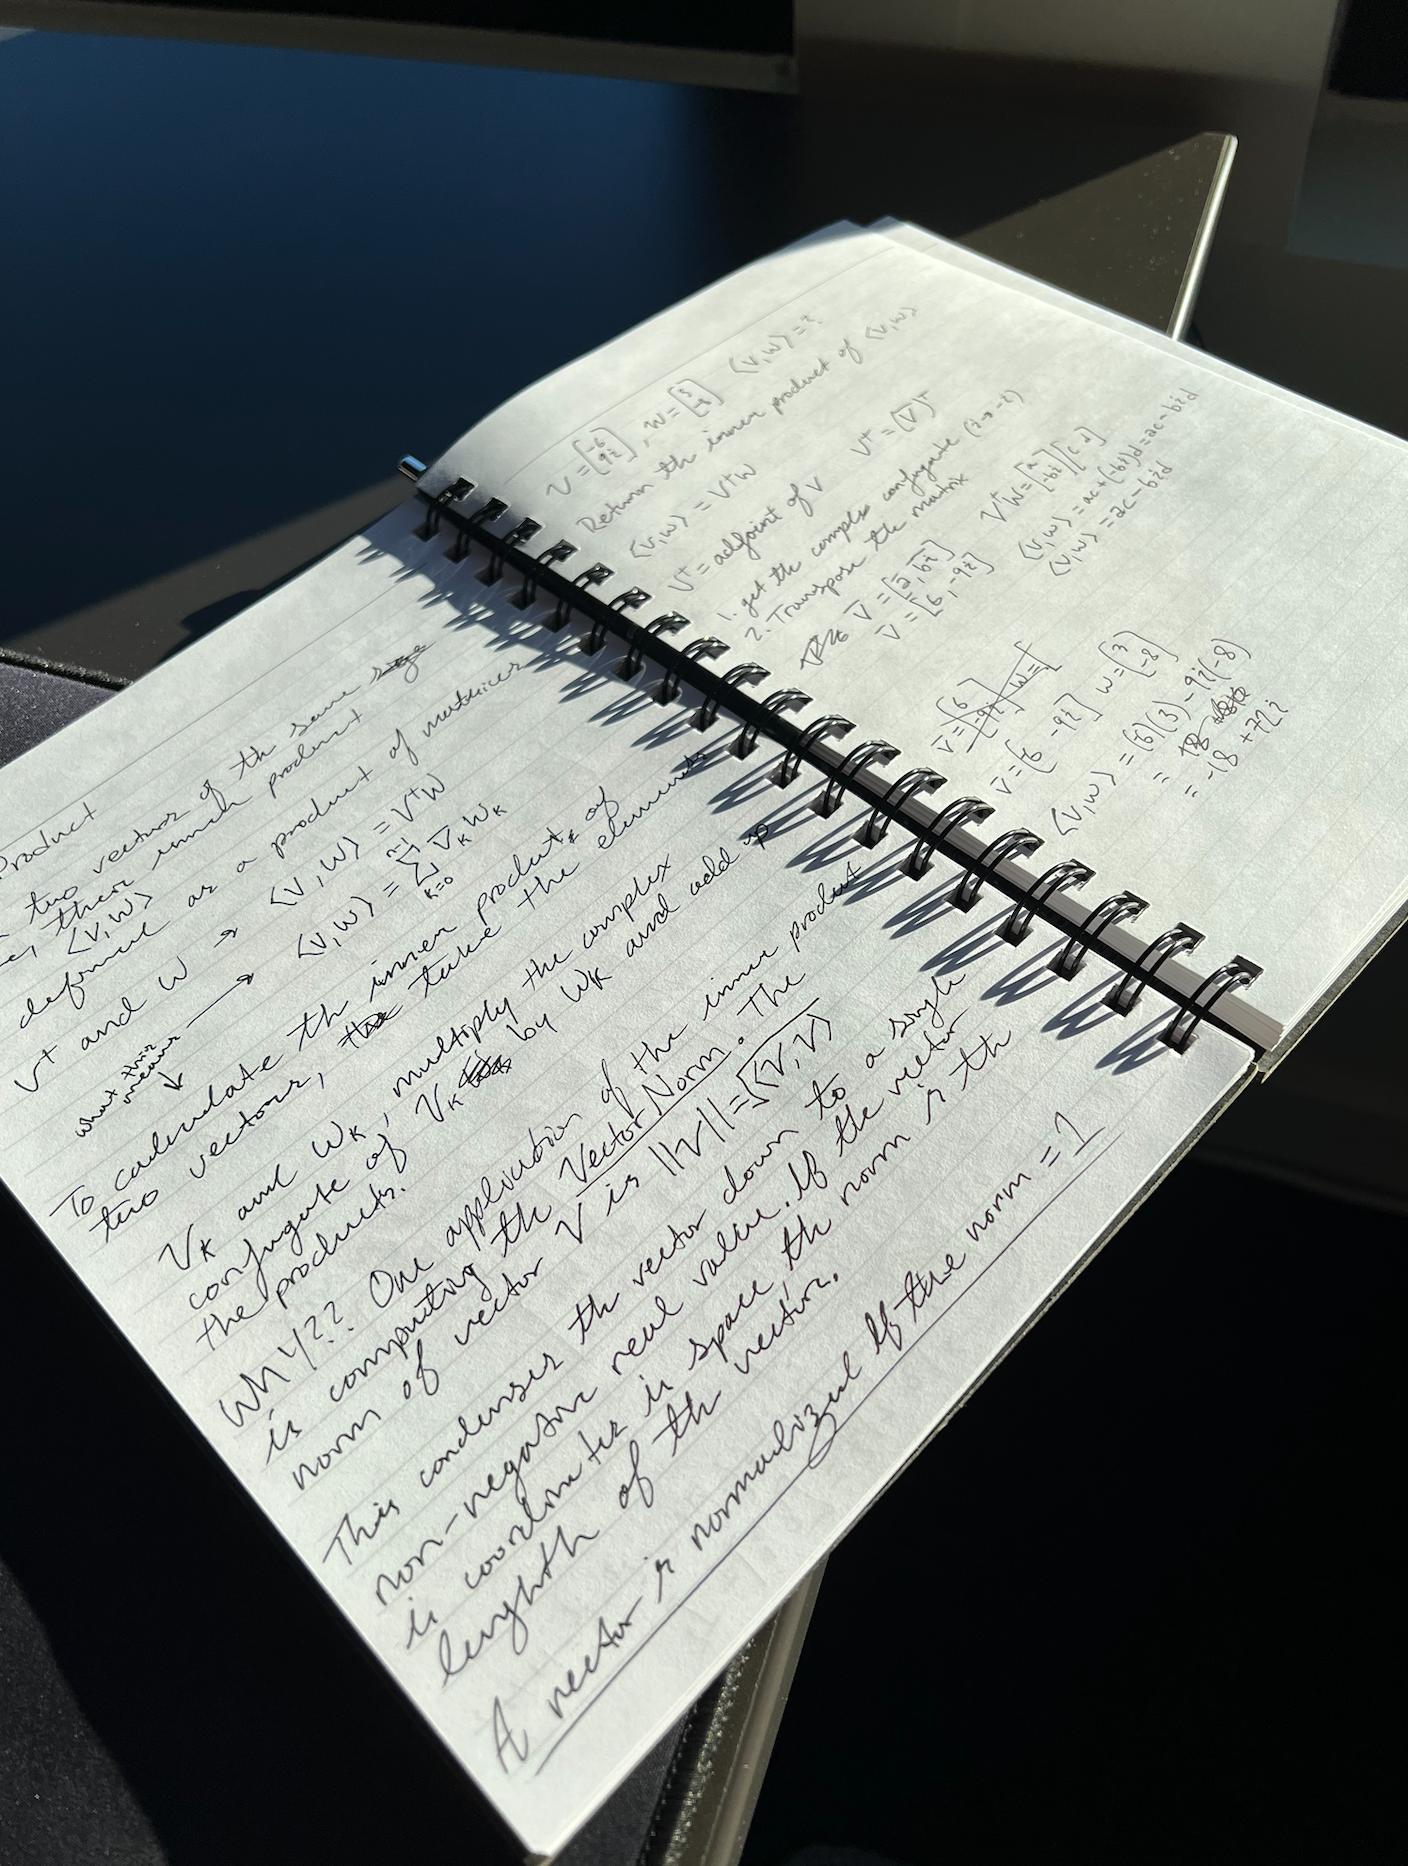 Product
two vectors of th same size
their innch product
⟨V,W⟩
defined as a product of matrices
V† and W → ⟨V,W⟩ = V†W
what this means → ⟨V,W⟩ = Σ_{k=0}^{n-1} V̄_K W_K
To caculate th inner product of
two vectors, take the elements
V_K and W_K, multiply the complex
conjugate of V_K by W_K and add up
the products.
WHY?? One application of the inner product
is computing th Vector Norm. The
norm of vector V is ||V|| = √⟨V,V⟩
This condenses th vector down to a single
non-negative real value. If the vector
is coordinates in space, th norm is th
lenghth of th vector.
A vector is normalized if the norm = 1
V = [-6 9i], W = [3 -8] ⟨V,W⟩ = ?
Return th inner product of ⟨V,W⟩
⟨V,W⟩ = V†W
V† = adjoint of V V† = (V̄)ᵀ
1. get th complex conjugate (i → -i)
2. Transpose the matrix
V̄ = [a, bi] V†W = [a -bi][c d]
V̄ = [6, -9i] ⟨V,W⟩ = ac+(-bi)d = ac-bid
⟨V,W⟩ = ac-bid
V̄ = [6 -9i] W = [
V̄ = [-6 -9i] W = [3 -8]
⟨V,W⟩ = (-6)(3) - 9i(-8)
= 18
= -18 + 72i